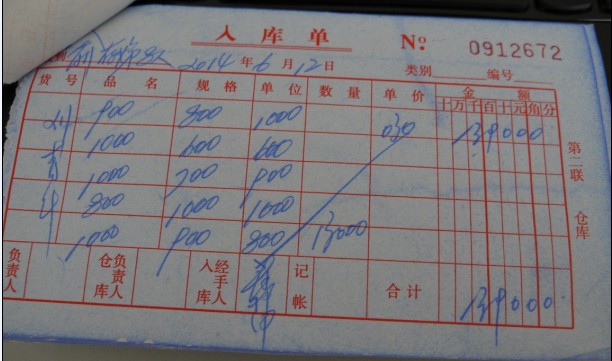 入库单
No: 0912672
2014年6月12日 类别 编号
货号 品名 规格 单位 数量 单价 金额
十万千百十元角分
900 800 1000 030 ¥39000
1000 600 600
1000 700 900
800 1000 1000
1000 900 800 13000
第二联 仓库
负责人 仓库负责人 入库经手人 记帐 合计 ¥39000